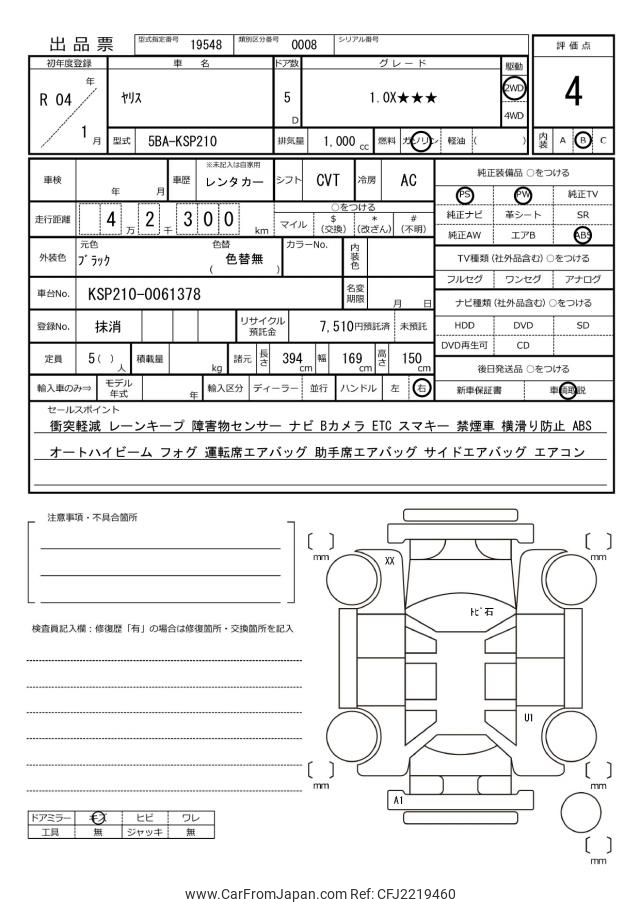 出品票
型式指定番号 19548 類別区分番号 0008 シリアル番号
評価点
4
内装 A B C
初年度登録 車名 ドア数 グレード 駆動
R 04 年 1 月
ヤリス
5 D
1.0X★★★
2WD
4WD
型式 5BA-KSP210 排気量 1,000 cc 燃料 ガソリン 軽油 ( )
車検 年 月 車歴 ※未記入は自家用 レンタカー シフト CVT 冷房 AC
走行距離 4 万 2 千 3 0 0 km
○をつける
マイル $ (交換) * (改ざん) # (不明)
外装色 元色 ブラック 色替 ( 色替無 ) カラーNo. 内装色
車台No. KSP210-0061378 名変期限 月 日
登録No. 抹消 リサイクル預託金 7,510円預託済 未預託
定員 5 ( ) 人 積載量 kg 諸元 長さ 394 cm 幅 169 cm 高さ 150 cm
輸入車のみ⇒ モデル年式 年 輸入区分 ディーラー 並行 ハンドル 左 右
純正装備品 ○をつける
PS PW 純正TV
純正ナビ 革シート SR
純正AW エアB ABS
TV種類(社外品含む) ○をつける
フルセグ ワンセグ アナログ
ナビ種類(社外品含む) ○をつける
HDD DVD SD
DVD再生可 CD
後日発送品 ○をつける
新車保証書 車輌取説
セールスポイント
衝突軽減 レーンキープ 障害物センサー ナビ Bカメラ ETC スマキー 禁煙車 横滑り防止 ABS
オートハイビーム フォグ 運転席エアバッグ 助手席エアバッグ サイドエアバッグ エアコン
注意事項・不具合箇所
検査員記入欄：修復歴「有」の場合は修復箇所・交換箇所を記入
ドアミラー キズ ヒビ ワレ
工具 無 ジャッキ 無
mm
mm
XX
トビ石
U1
mm
mm
A1
mm
www.CarFromJapan.com Ref: CFJ2219460